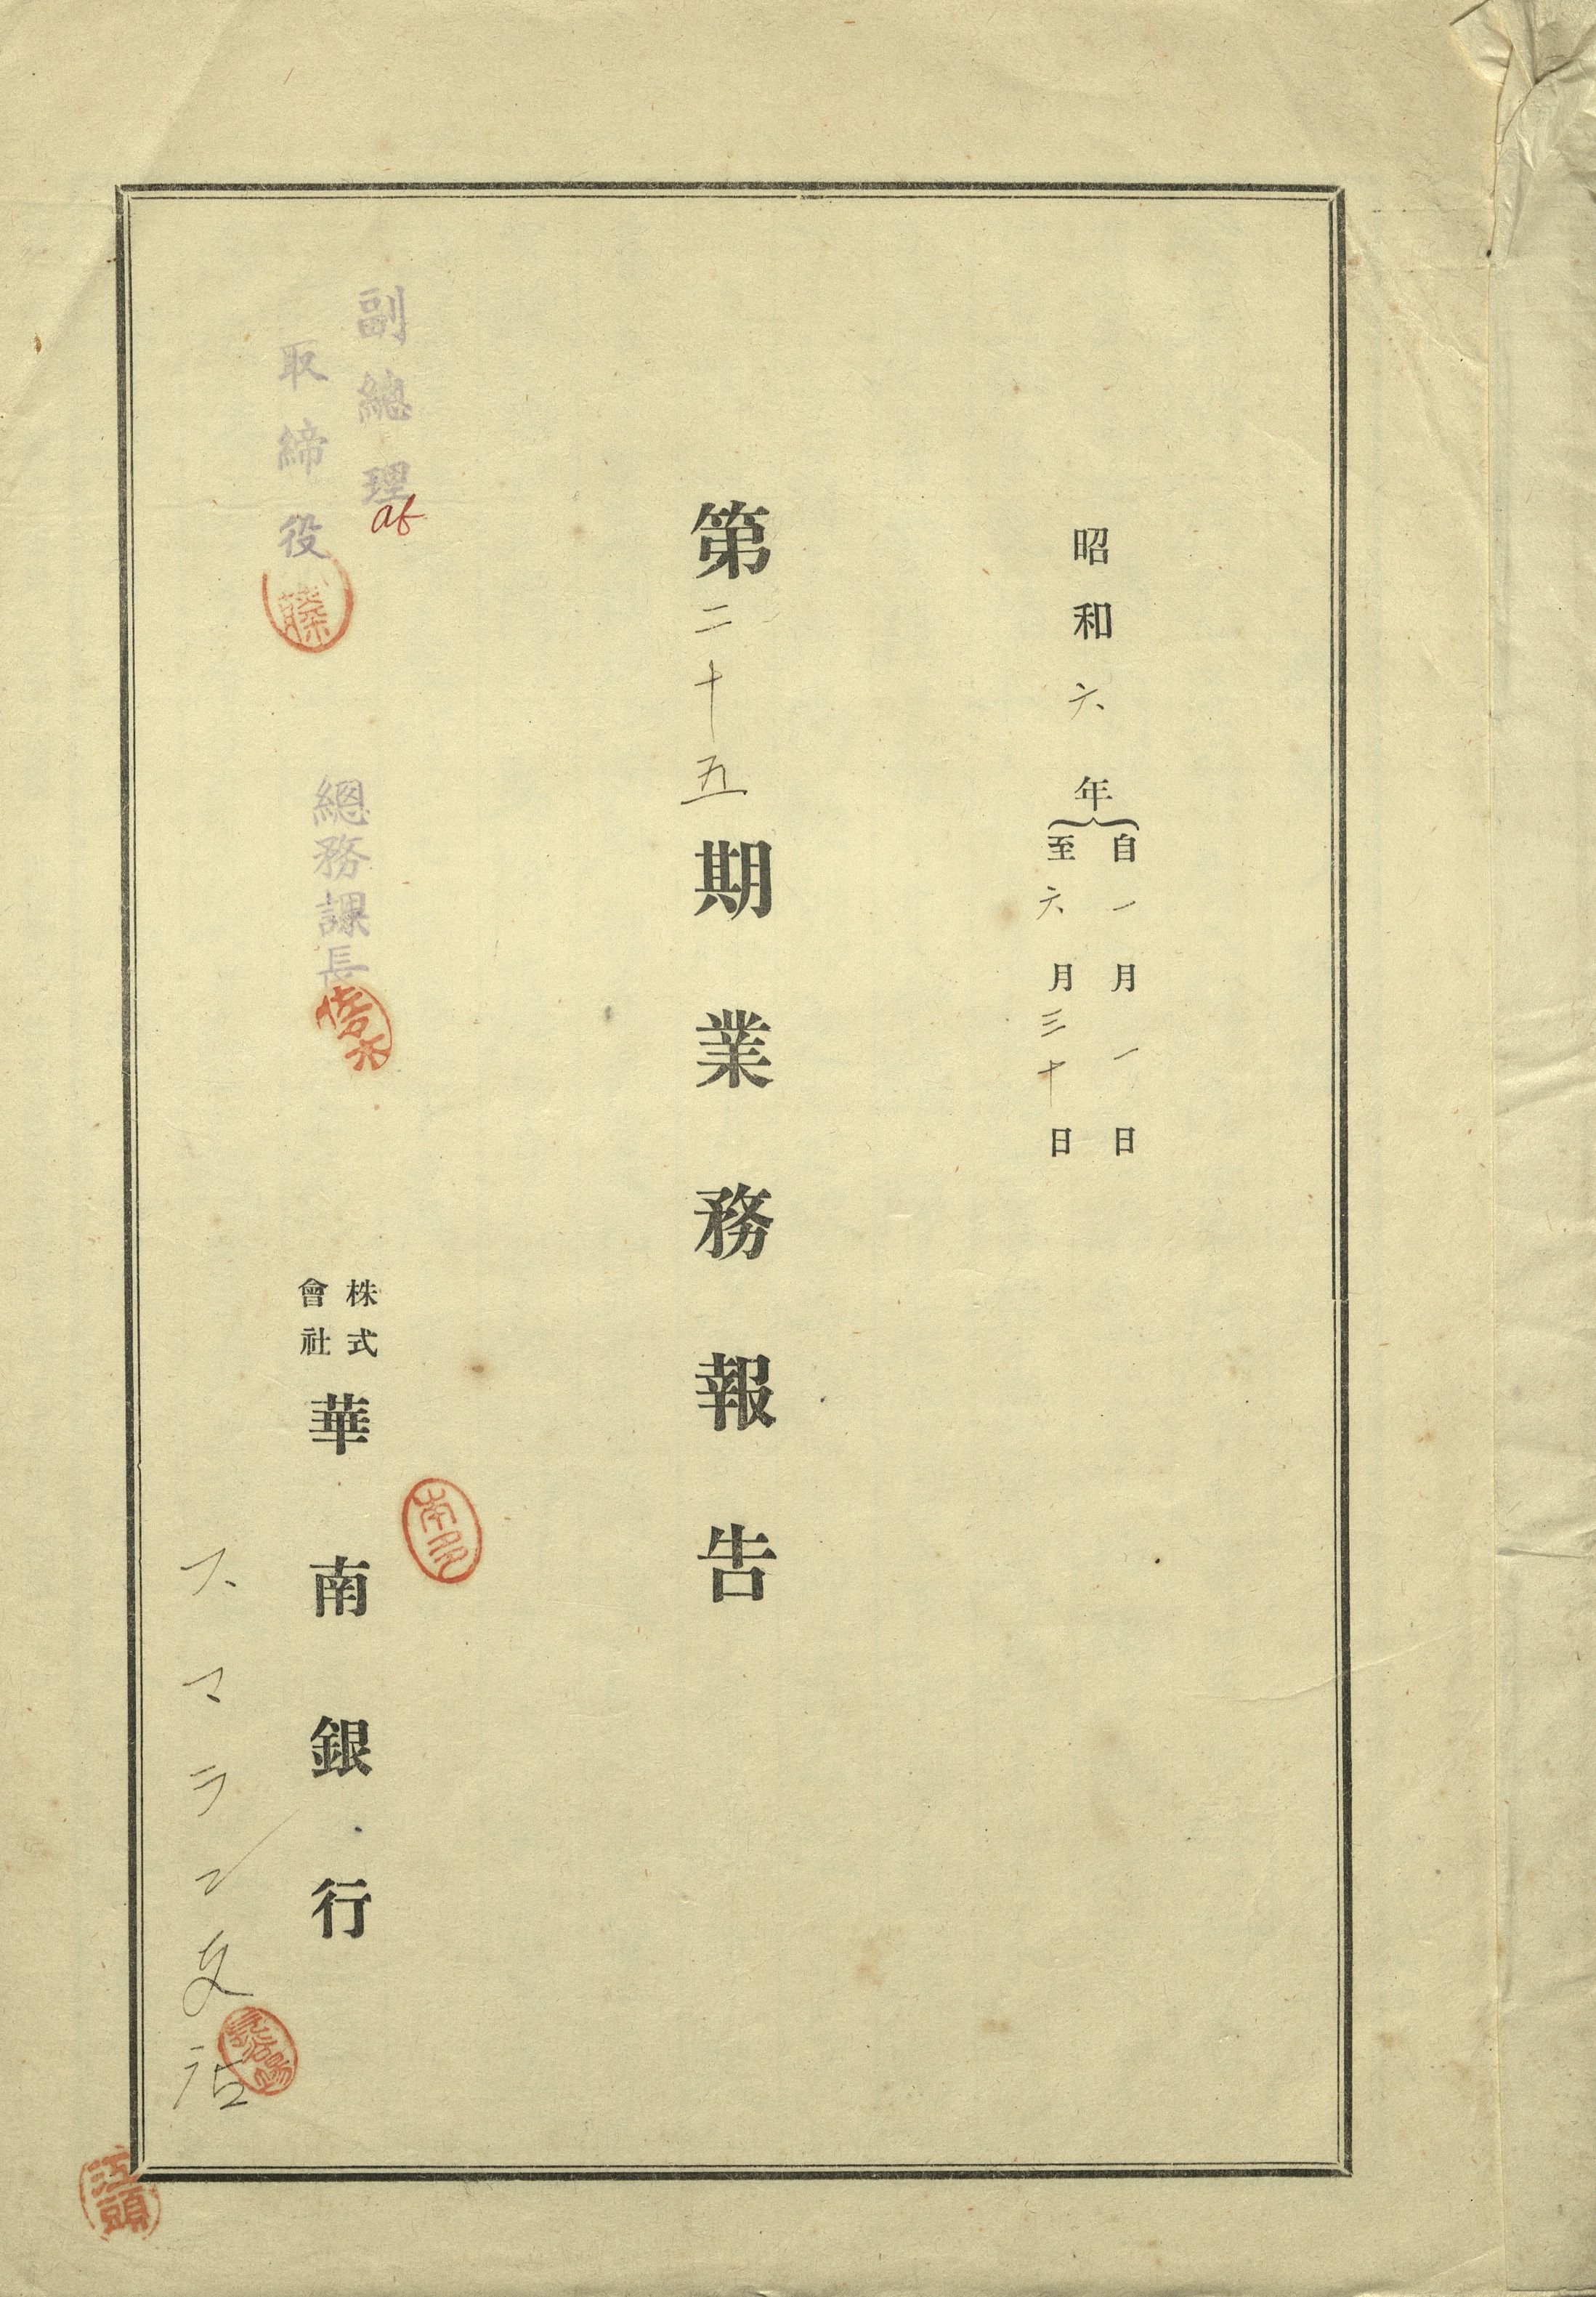 昭和六年
自一月一日
至六月三十日
第二十五期業務報告
副總理
取締役
藤
總務課長
株式
會社
華南銀行
スマラン支店
江頭